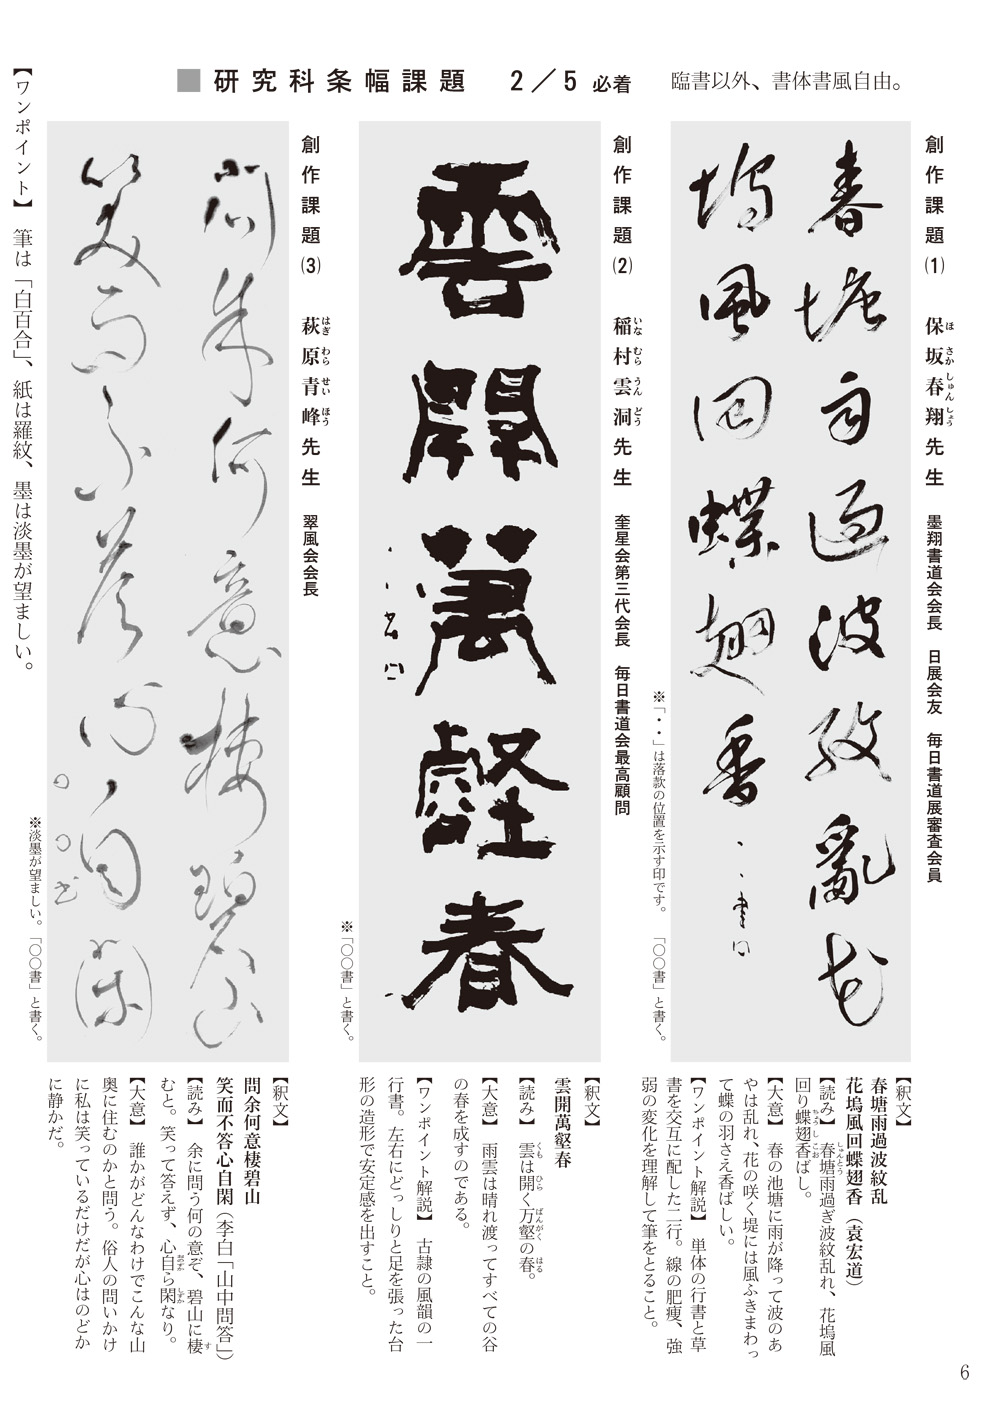 ■研究科条幅課題　2／5 必着　臨書以外、書体書風自由。
創作課題⑴　保坂春翔先生　墨翔書道会会長　日展会友　毎日書道展審査会員
ほ さか しゅん しょう
春塘雨過波紋亂花
塢風回蝶翅香
、、書□
※「・・」は落款の位置を示す印です。　「〇〇書」と書く。
【釈文】
春塘雨過波紋乱
花塢風回蝶翅香（袁宏道）
【読み】　春塘雨過ぎ波紋乱れ、花塢風
しゅんとう
回り蝶翅香ばし。
ちょうし こお
【大意】　春の池塘に雨が降って波のあ
やは乱れ、花の咲く堤には風ふきまわっ
て蝶の羽さえ香ばしい。
【ワンポイント解説】　単体の行書と草
書を交互に配した二行。線の肥痩、強
弱の変化を理解して筆をとること。
創作課題⑵　稲村雲洞先生　奎星会第三代会長　毎日書道会最高顧問
いな むら うん どう
雲開萬壑春
、、書□
※「〇〇書」と書く。
【釈文】
雲開萬壑春
【読み】　雲は開く万壑の春。
くも ひら ばんがく はる
【大意】　雨雲は晴れ渡ってすべての谷
の春を成すのである。
【ワンポイント解説】　古隷の風韻の一
行書。左右にどっしりと足を張った台
形の造形で安定感を出すこと。
創作課題⑶　萩原青峰先生　翠風会会長
はぎ わら せい ほう
問余何意棲碧山
笑而不答心自閑
〇〇書
※淡墨が望ましい。「〇〇書」と書く。
【釈文】
問余何意棲碧山
笑而不答心自閑（李白「山中問答」）
【読み】　余に問う何の意ぞ、碧山に棲
す
むと。笑って答えず、心自ら閑なり。
おのずか しずか
【大意】　誰かがどんなわけでこんな山
奥に住むのかと問う。俗人の問いかけ
に私は笑っているだけだが心はのどか
に静かだ。
【ワンポイント】　筆は「白百合」、紙は羅紋、墨は淡墨が望ましい。
6